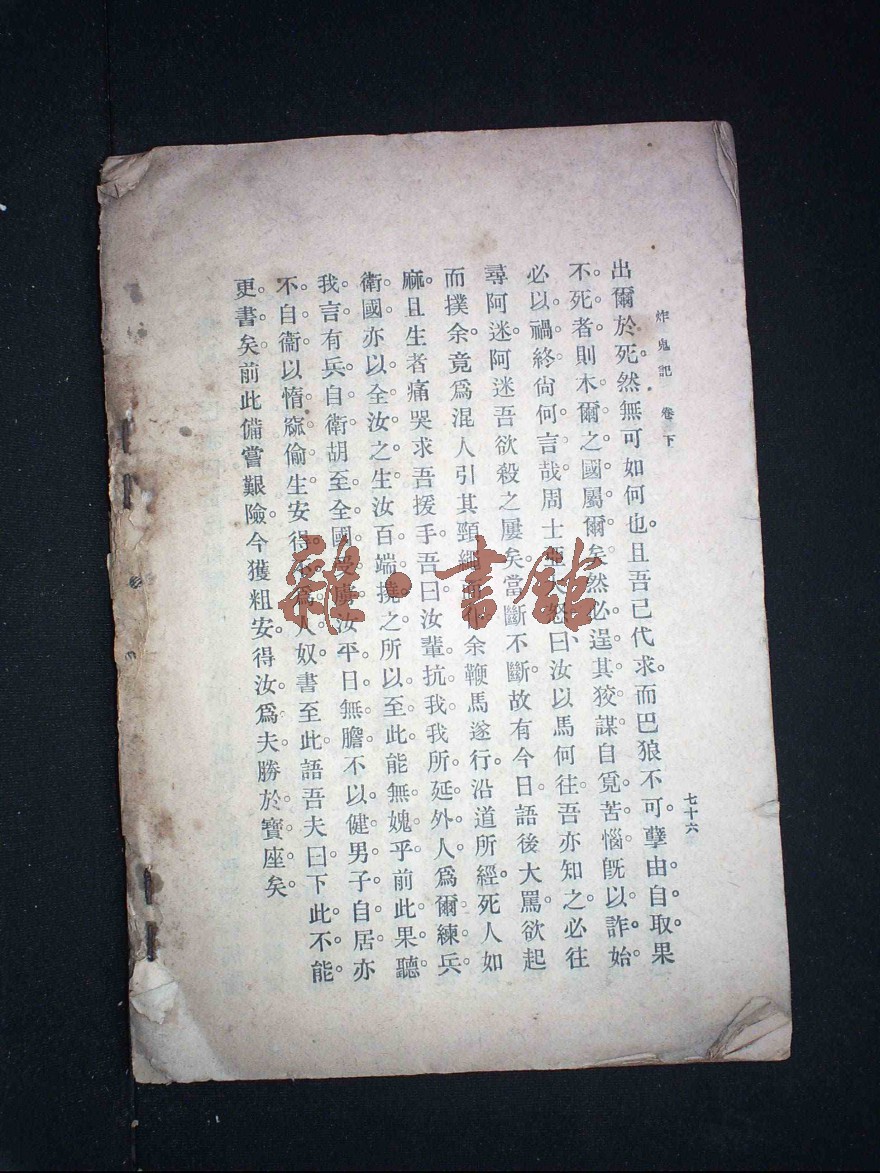 炸鬼記 卷下
七十六
出爾於死。然無可如何也。且吾已代求。而巴狼不可。孽由自取。果
不死者。則木爾之國屬爾矣。然必逞其狡謀。自覓苦惱。既以詐始。
必以禍終。尙何言哉。周士 大怒。曰。汝以馬何往。吾亦知之。必往
尋阿迷。阿迷吾欲殺之屢矣。當斷不斷。故有今日。語後大罵。欲起
而撲余。竟爲混人引其頸繩 仆。余鞭馬遂行。沿道所經。死人如
麻。且生者痛哭求吾援手。吾曰。汝輩抗我。我所延外人。爲爾練兵
衛國。亦以全汝之生。汝百端撓之。所以至此。能無媿乎。前此果聽
我言。有兵自衛。胡至全國受虜。汝平日無膽。不以健男子自居。亦
不自衞。以惰窳偷生。安得不爲人奴。書至此語。吾夫曰。下此不能
更書矣。前此備嘗艱險。今獲粗安。得汝爲夫。勝於寶座矣。
雜·書館